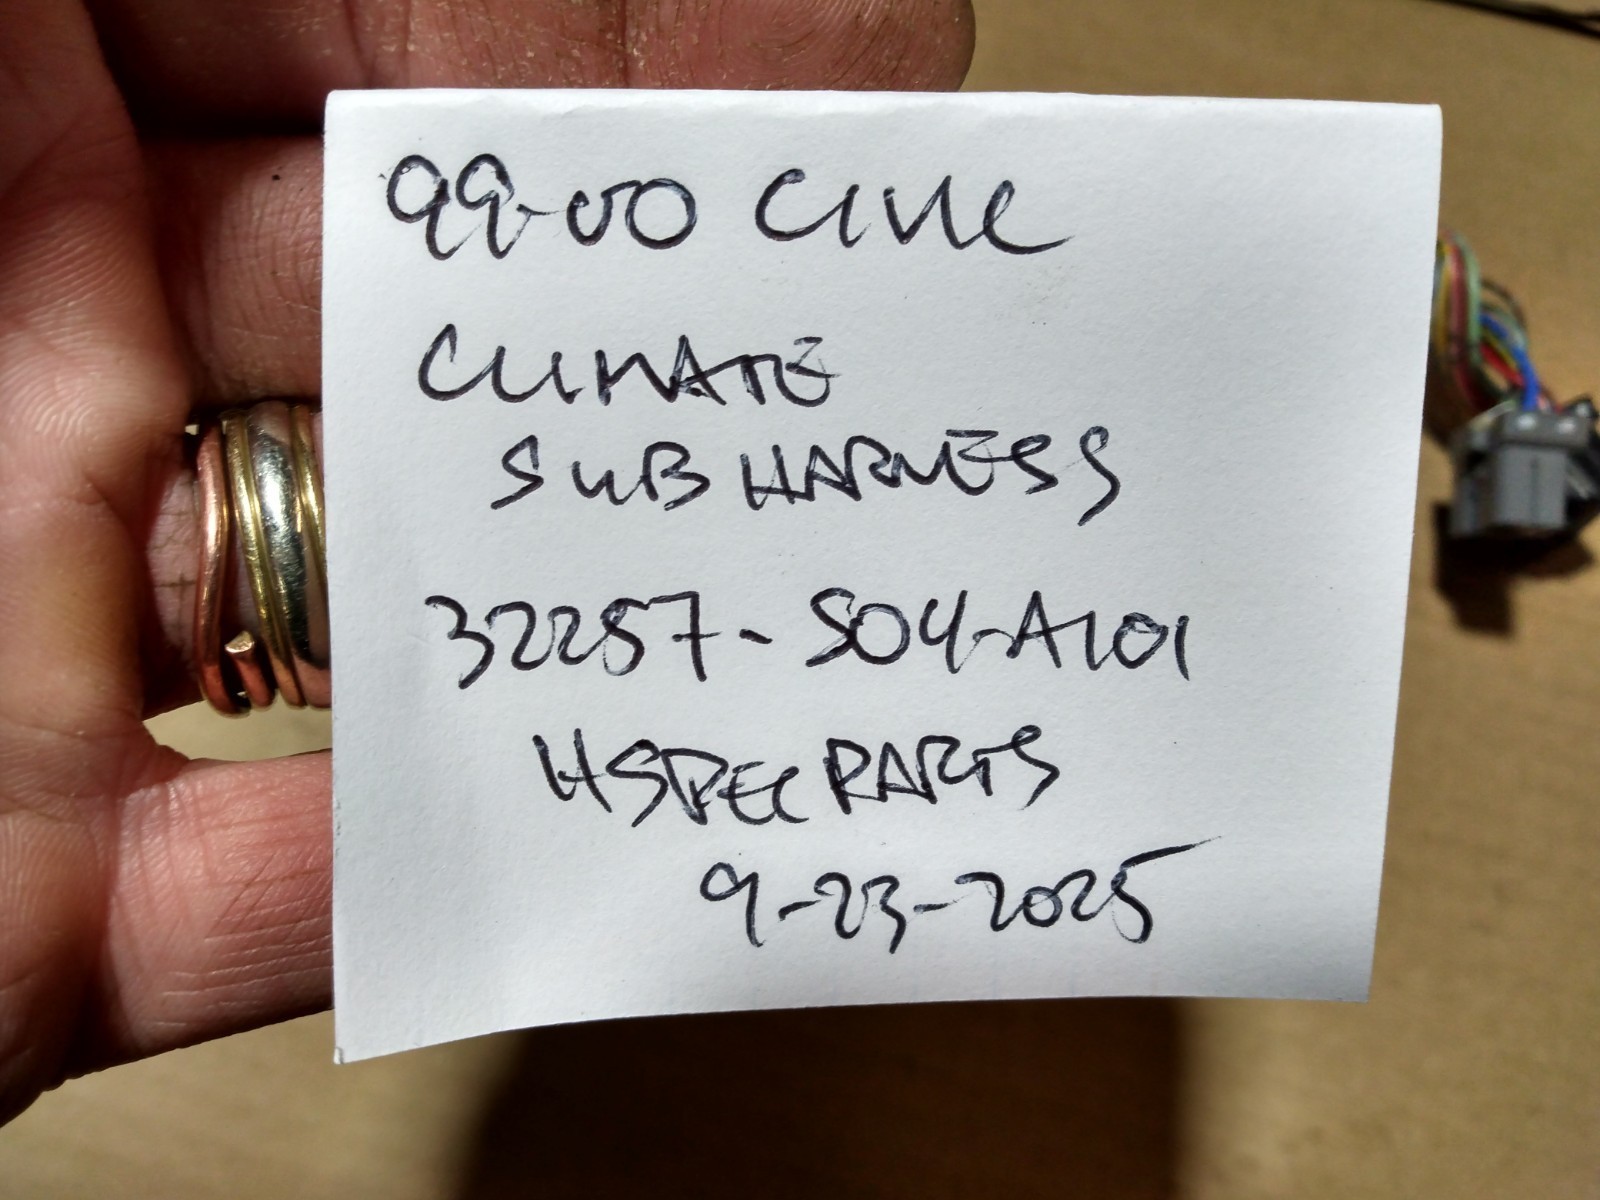 99-00 CIVIC
CLIMATE
SUB HARNESS
32257-S04-A101
HSPEC PARTS
9-23-2025